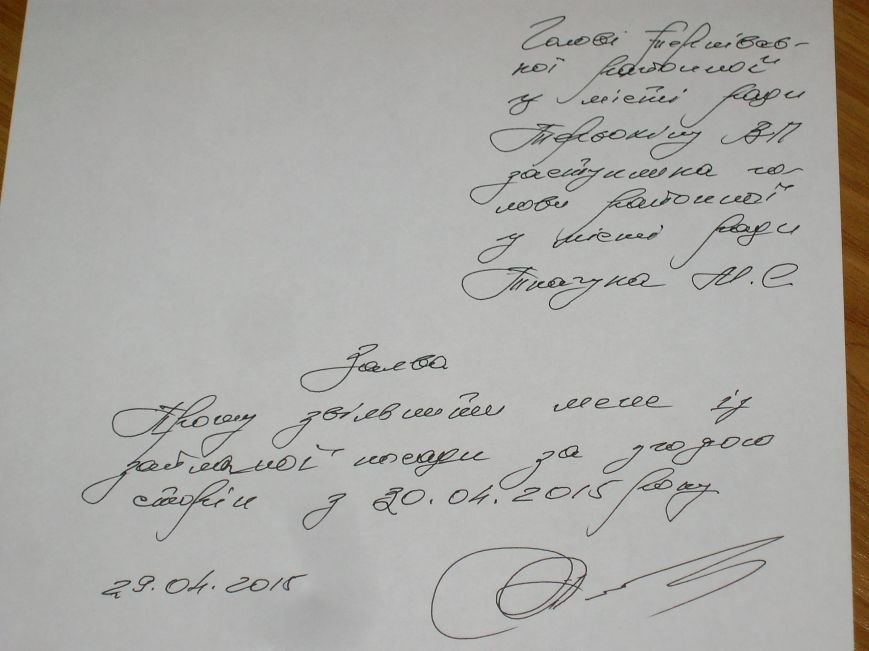 Голові Тернівсь-
кої районної
у місті ради
Терьохіну В.П
заступника го-
лови районної
у місті ради
Ткачука М.С.
Заява
Прошу звільнити мене із
займаної посади за згодою
сторін з 30.04.2015 року
29.04.2015